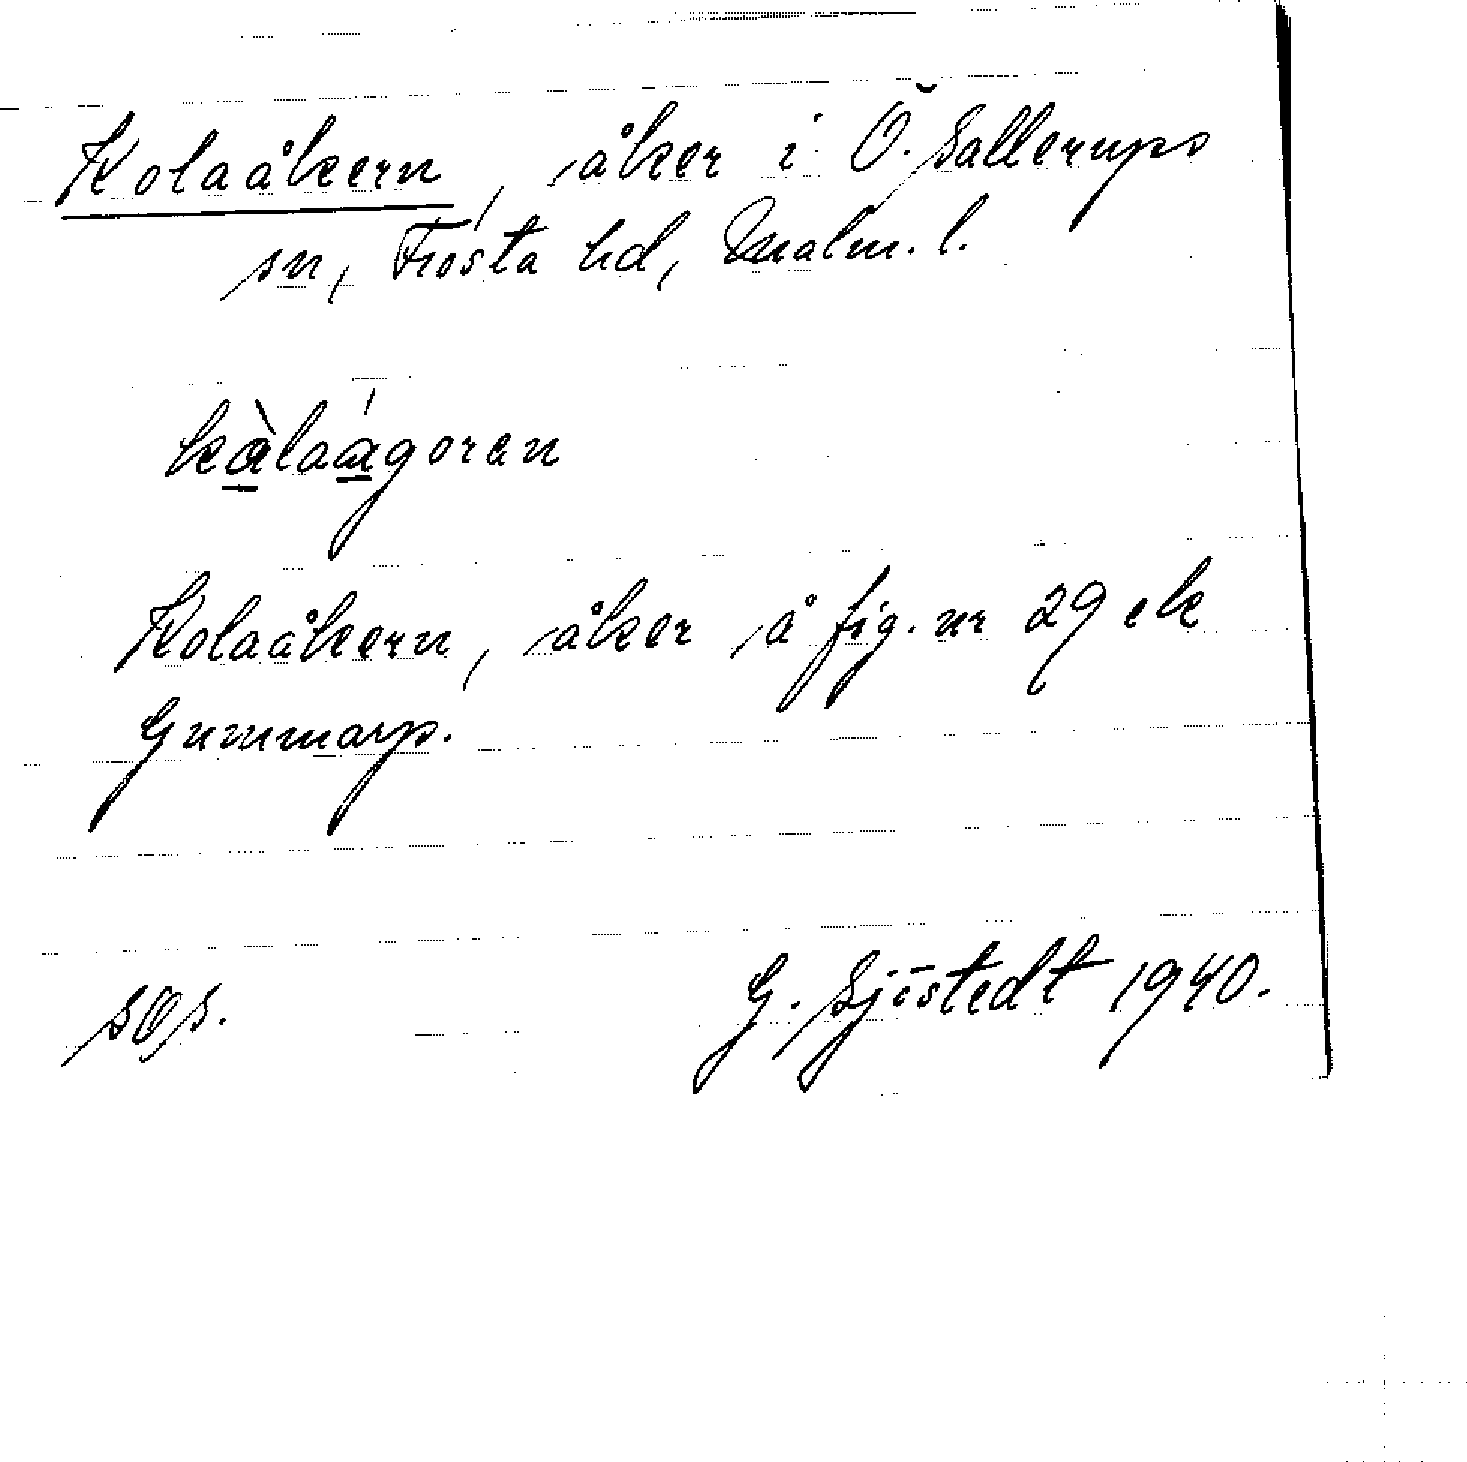 Kolaåkern, åker i Ö. Sallerups
sn, Frosta hd, Malm. l.
kàlaágoran
Kolaåkern, åker å fig. nr 29 ek
Gummarp.
G. Sjöstedt 1940.